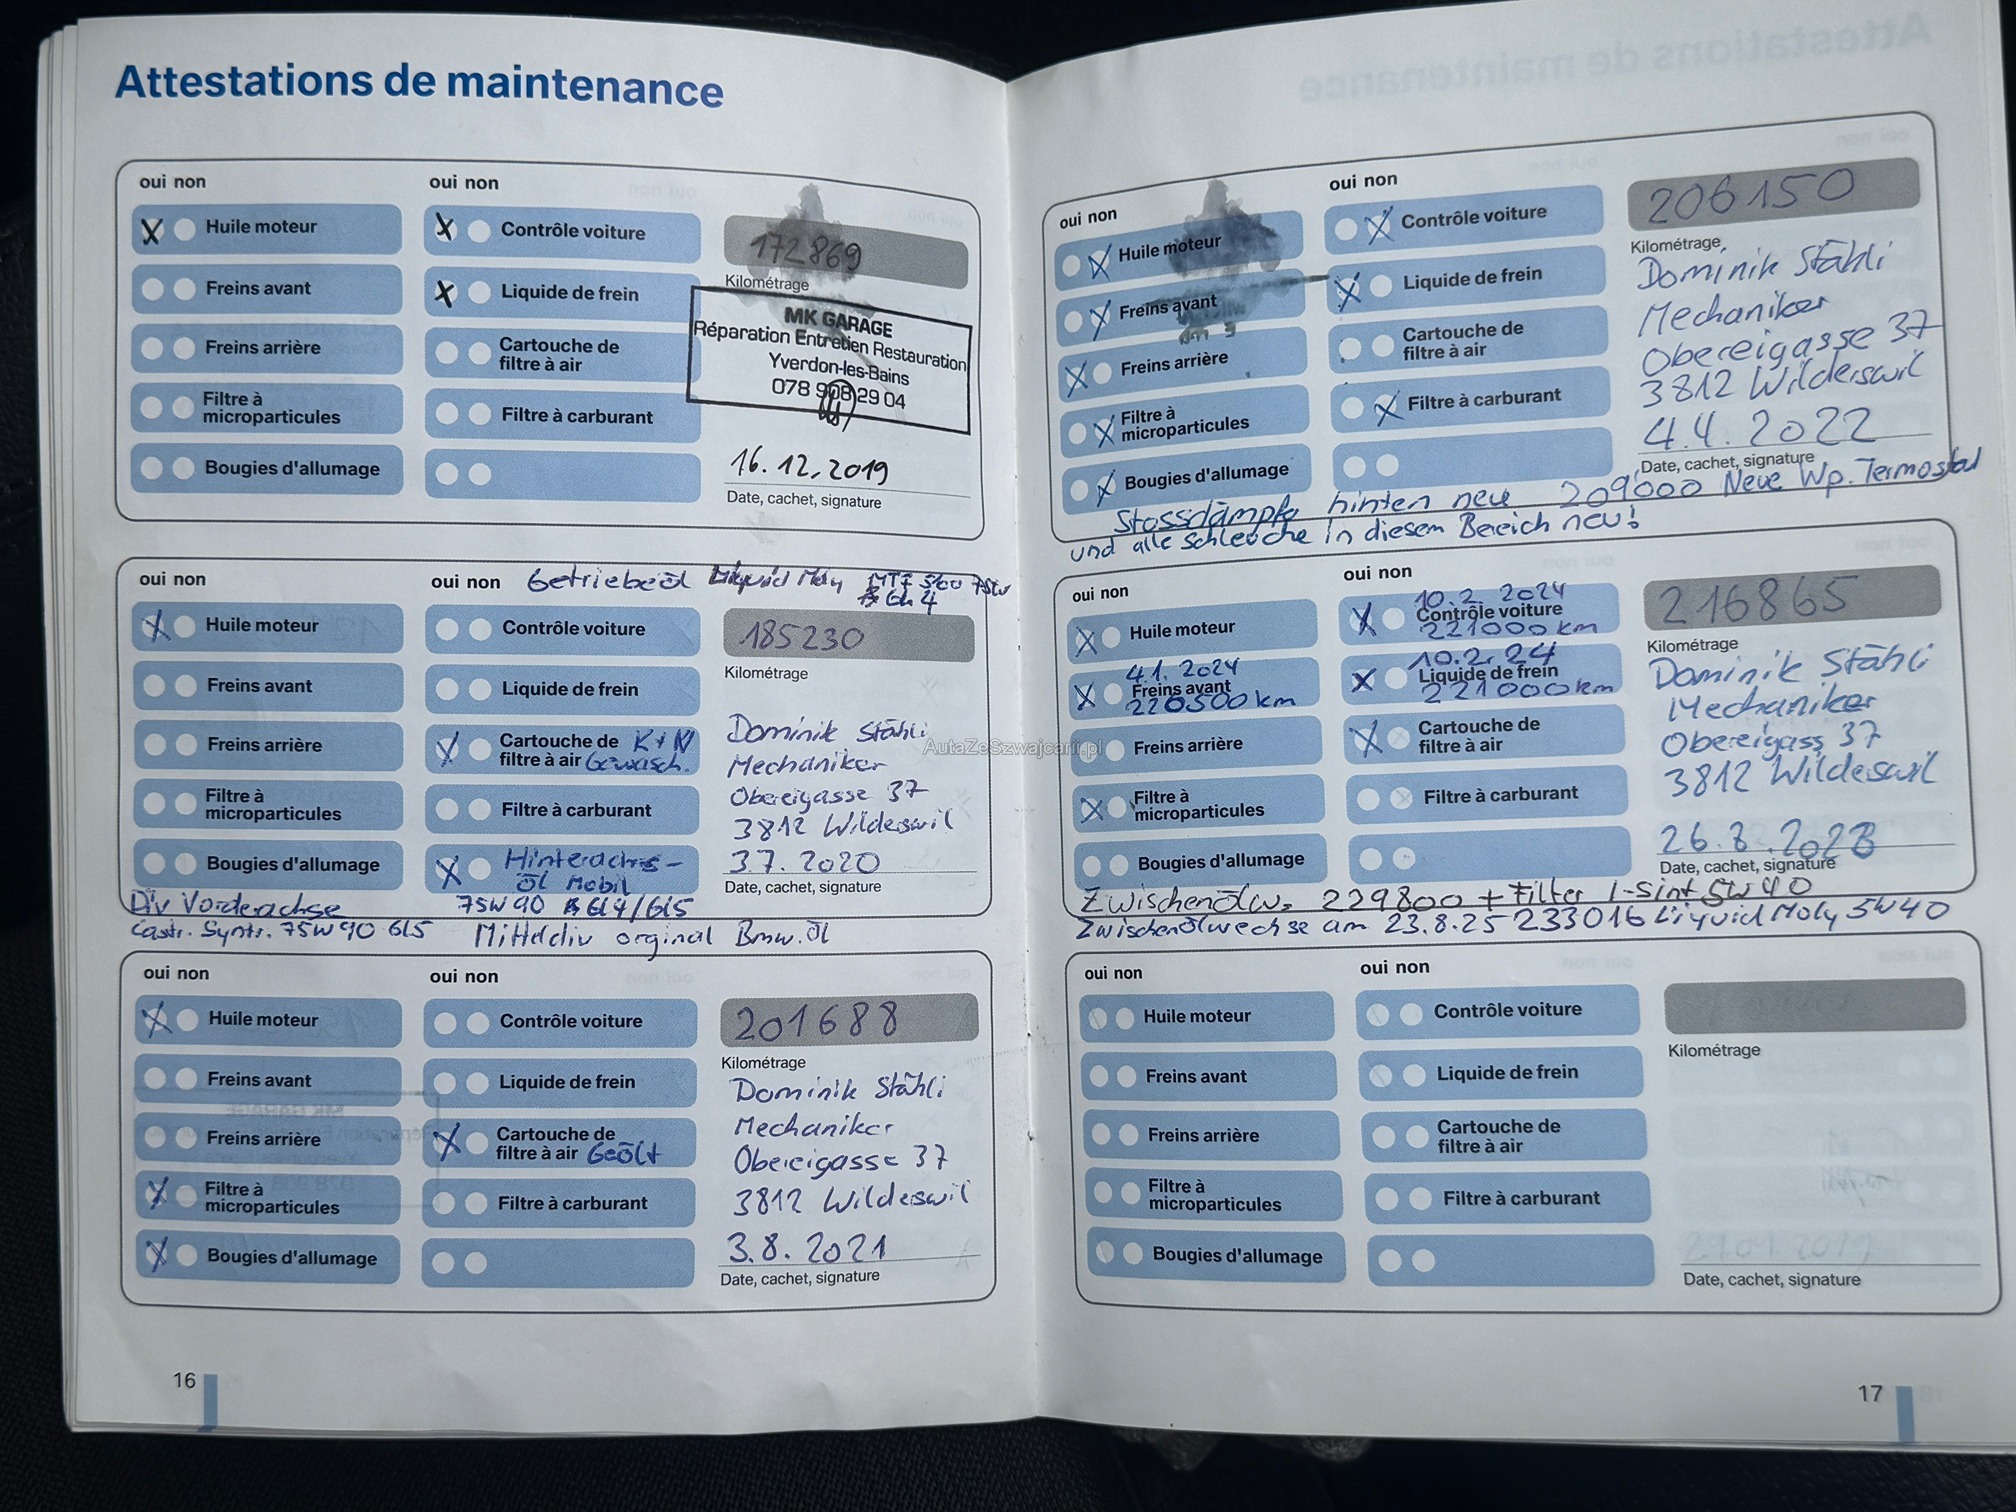 Attestations de maintenance
oui non
oui non
Huile moteur
Contrôle voiture
172869
Freins avant
Liquide de frein
Kilométrage
MK GARAGE
Réparation Entretien Restauration
Yverdon-les-Bains
078 908 29 04
Freins arrière
Cartouche de
filtre à air
Filtre à
microparticules
Filtre à carburant
Bougies d'allumage
16.12.2019
Date, cachet, signature
oui non
oui non
Getriebeöl Liquid Moly MTF 5100 75W
GL 4
Huile moteur
Contrôle voiture
185230
Freins avant
Liquide de frein
Kilométrage
Freins arrière
Cartouche de K+N
filtre à air Gewasch.
Filtre à
microparticules
Filtre à carburant
Bougies d'allumage
Hinterachs-
öl Mobil
Dominik Stähli
Mechaniker
Obereigasse 37
3812 Wilderswil
3.7.2020
Date, cachet, signature
Div Vorderachse
75W90 GL4/GL5
Castr. Syntr. 75W90 GL5
Mitteldiv orginal Bmw. Öl
oui non
oui non
Huile moteur
Contrôle voiture
201688
Freins avant
Liquide de frein
Kilométrage
Freins arrière
Cartouche de
filtre à air Geölt
Filtre à
microparticules
Filtre à carburant
Bougies d'allumage
Dominik Stähli
Mechaniker
Obereigasse 37
3812 Wilderswil
3.8.2021
Date, cachet, signature
16
oui non
oui non
Huile moteur
Contrôle voiture
206150
Freins avant
Liquide de frein
Kilométrage
Freins arrière
Cartouche de
filtre à air
Filtre à
microparticules
Filtre à carburant
Bougies d'allumage
Dominik Stähli
Mechaniker
Obereigasse 37
3812 Wilderswil
4.4.2022
Date, cachet, signature
Stossdämpfe hinten neu 209000 Neue Wp. Termostat
und alle Schleuche in diesem Bereich neu!
oui non
oui non
Huile moteur
10.2.2024
Contrôle voiture
221000 km
216865
4.1.2024
Freins avant
220500 km
10.2.24
Liquide de frein
221000 km
Kilométrage
Freins arrière
Cartouche de
filtre à air
Filtre à
microparticules
Filtre à carburant
Bougies d'allumage
Dominik Stähli
Mechaniker
Obereigass 37
3812 Wilderswil
26.8.2023
Date, cachet, signature
Zwischenölw. 229800 + Filter 1-Sint 5W40
Zwischenölwechse am 23.8.25 233016 Liquid Moly 5W40
oui non
oui non
Huile moteur
Contrôle voiture
Freins avant
Liquide de frein
Kilométrage
Freins arrière
Cartouche de
filtre à air
Filtre à
microparticules
Filtre à carburant
Bougies d'allumage
Date, cachet, signature
17
AutaZeSzwajcarii.pl